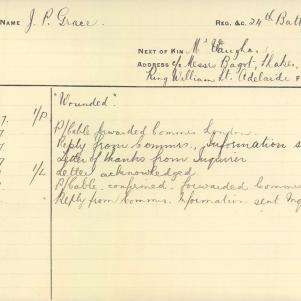 NAME J. P. Grace. REG. &C. 24th Batt
NEXT OF KIN Mr Vaughan
ADDRESS c/o Messrs Bagot, Shakes,
King William St. Adelaide F
"Wounded".
7. 1/P P/Cable forwarded Commrs London.
Reply from Commrs., Information s
Letter of thanks from Inquirer
7 1/L Letter acknowledged
P/Cable confirmed. forwarded Commrs
Reply from Commrs. Information sent Inq